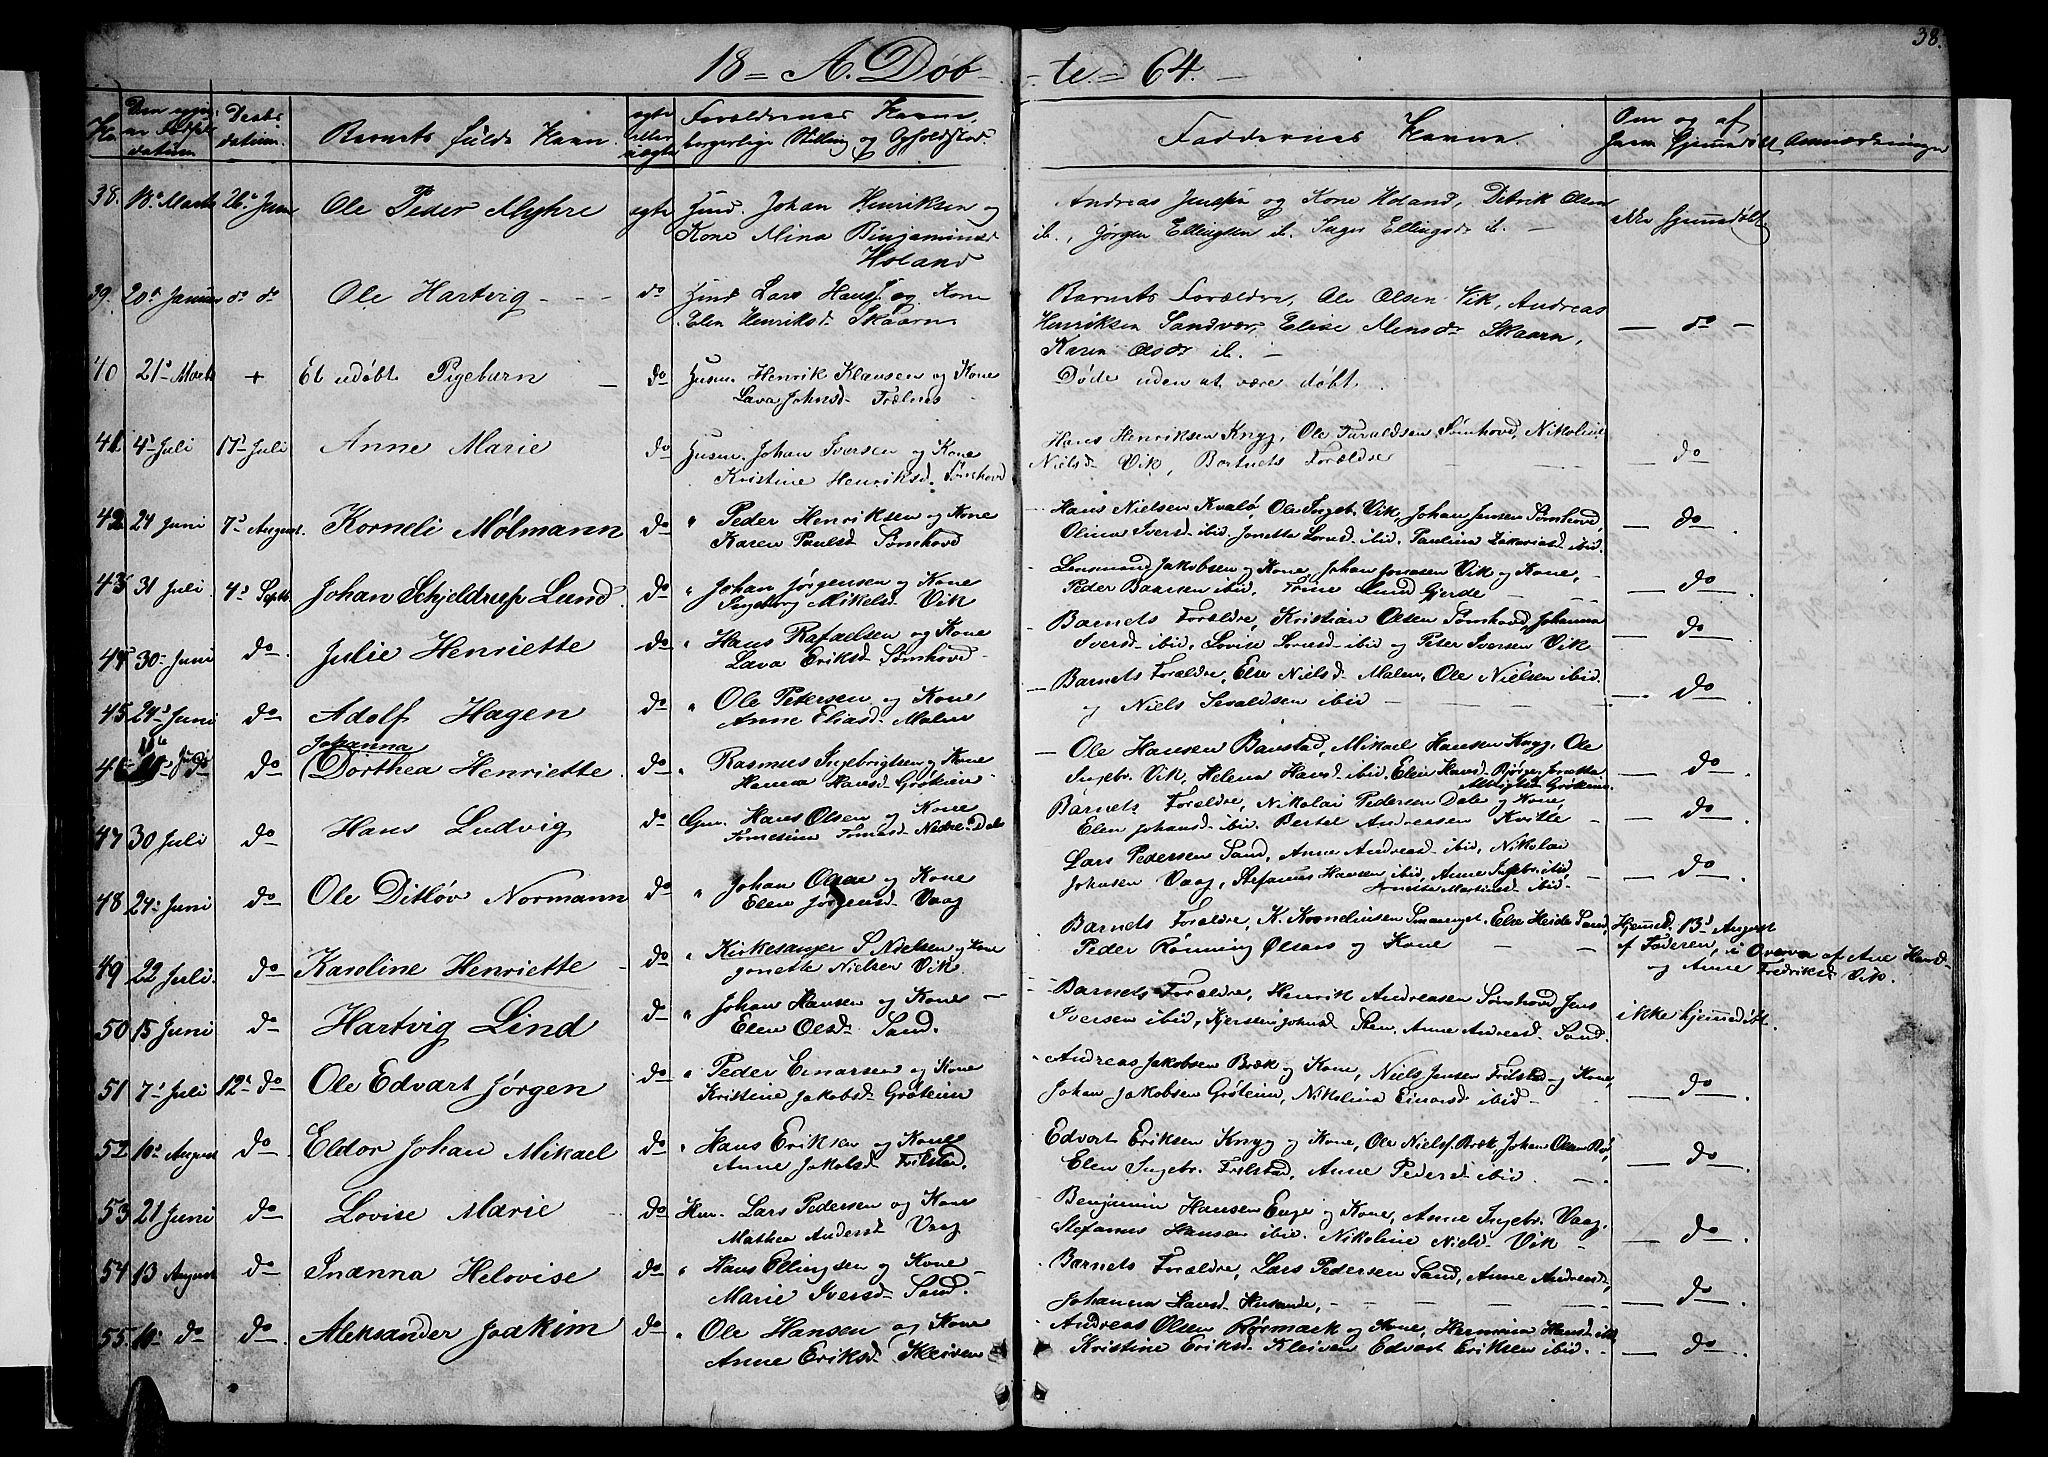 38.
18 = A. Døb - te. = 64. -
No
datum
datum.
Barnets fulde Navn
ægte eller uægte
Forældrenes Navne, borgerlige Stilling og Opholdssted.
Faddernes Navne.
Om og af hvem hjemmedøbt
Anmærkninger
38. 18de Marts 26de Juni Ole Peder Myhre ægte Huusm. Johan Henriksen og
Kone Mina Binjaminsd.
Holand
Andreas Jenssen og Kone Holand, Ditrik Olsen
ib., Jørgen Ellingsen ib. Inger Ellingsdr ib. —
ikke hjemmedøbt
39. 20de Januar do do Ole Hartvig - - - do Huusm. Lars Hansen og Kone
Elen Henriksd. Skaarn.
Barnets Forældre, Ole Olsen Vik, Andreas
Henriksen Sandvær, Elise Monsdr Skaarn,
Karen Olsdr ib. —
— do —
40 21de Marts + Et udøbt Pigebarn — do Husm. Henrik Klausen og Kone
Lava Johnsd. Trælnes
Døde uden at være døbt.
41. 4de Juli 17de Juli Anne Marie do Husm. Johan Iversen og Kone
Kristine Henriksd. Sømhovd
Hans Henriksen Knyg, Ole Taraldsen Sømhovd, Nikoline
Nielsd. Vik, Barnets Forældre
— do
42 24 Juni 7de August. Korneli Mølmann do " Peder Henriksen og Kone
Karen Paulsd. Sømhovd
Hans Nielsen Kvalø, Ole Ingebr. Vik, Johan Jensen Sømhovd,
Olina Iversd. ibid. Jonetta Lornsd. ibid. Paulina Zakariasd. ibid.
— do —
43 31 Juli 4de Septb. Johan Schjeldrup Lund do " Johan Jørgensen og Kone
Ingeborg Mikelsd. Vik
Lensmand Jakobsen og Kone, Johan Jonasen Vik og Kone,
Peder Baansen ibid, Trine Lund Gjerde
— do —
44 30 Juni do Julie Henriette do " Hans Rafaelsen og Kone
Lava Eriksd. Sømhovd
Barnets Forældre, Kristian Olsen Sømhovd, Johanna
Iversd. ibid, Lovise Lornsd. ibid og Peter Iversen Vik
— do —
45 24de Juni do Adolf Hagen do " Ole Petersen og Kone
Anne Eliasd. Malen
Barnets Forældre, Else Nielsd. Malen, Ole Nielsen ibid.
og Niels Sivaldsen ibid
— do
46 do Johanna
Dorthea Henriette do " Rasmus Ingebrigtsen og Kone
Hanna Hansd. Grøteim
Ole Hansen Baustad, Mikael Hansen Knyg, Ole
Ingebr. Vik, Helena Hansd. ibid, Elen Hansd. Bjørge, Jonetta
Grøteim.
— do —
47 30 Juli do Hans Ludvig do Gm. Hans Olsen og Kone
Nedre Dale
Barnets Forældre, Nikolai Pedersen Dale og Kone,
Elen Johansd. ibid. Bertel Andreasen Kvitte
— do —
48 24de Juni do Ole Ditløv Normann do " Johan og Kone
Elen Jørgensd. Vaag
Lars Pedersen Sand, Anne Andreasd. ibid, Nikolai
Johnsen Vaag, Stefanus Hansen ibid, Anne Ingebr. ibid,
Martinsd. ibid
— do —
49 22 Juli do Karoline Henriette do " Kirkesanger S. Nielsen og Kone
Jonetta Nielsen Vik
Barnets Forældre, K. Kornelinsen, Else Heide Sand,
Peder Rønning Ølsars og Kone
Hjemmed. 13de August
af Faderen, i Overvær af Ane Hansd.
og Anne Fredriksd. Vik.
50 15 Juni do Hartvig Lind do " Johan Hansen og Kone
Elen Olsd. Sand.
Barnets Forældre, Henrik Andreasen Sømhovd, Jens
Iversen ibid, Kjersten Johnsd. Sten, Anne Andreasd. Sand.
ikke hjemmedøbt.
51 7de Juli 12de do Ole Edvart Jørgen do " Peder Einarsen og Kone
Kristine Jakobsd. Grøteim
Andreas Jakobsen Bræk og Kone, Niels Jensen Frilstad og Kone,
Johan Jakobsen Grøteim, Nikolina Einarsd. ibid
— do —
52 10de August do Eldor Johan Mikael do " Hans Eriksen og Kone
Anne Jakobsd. Frilstad.
Edvart Eriksen Knyg og Kone, Ole Nielsen Bræk, Johan Olsen,
Elen Ingebr. Frilstad, Anne Pedersd. ibid.
— do —
53 21 Juni do Lovise Marie do Hm. Lars Pedersen og Kone
Mathea Andersd. Vaag
Benjamin Hansen Enge og Kone, Anne Ingebr. Vaag,
Stefanus Hansen ibid. Nikoline Nielsd. Vik
— do —
54 13 August do Inanna Helovise do " Hans Ellingsen og Kone
Marie Iversd. Sand.
Barnets Forældre, Lars Pedersen Sand, Anne Andreasd.,
Johanna Hansd. Husande,
— do —
55 10de do do Aleksander Joakim do " Ole Hansen og Kone
Anne Eriksd. Kleiven
Andreas Olsen Rørmark og Kone, Hermina Hansd. ibid
Kristine Eriksd. Kleiven Edvart Eriksen ibid.
— do —